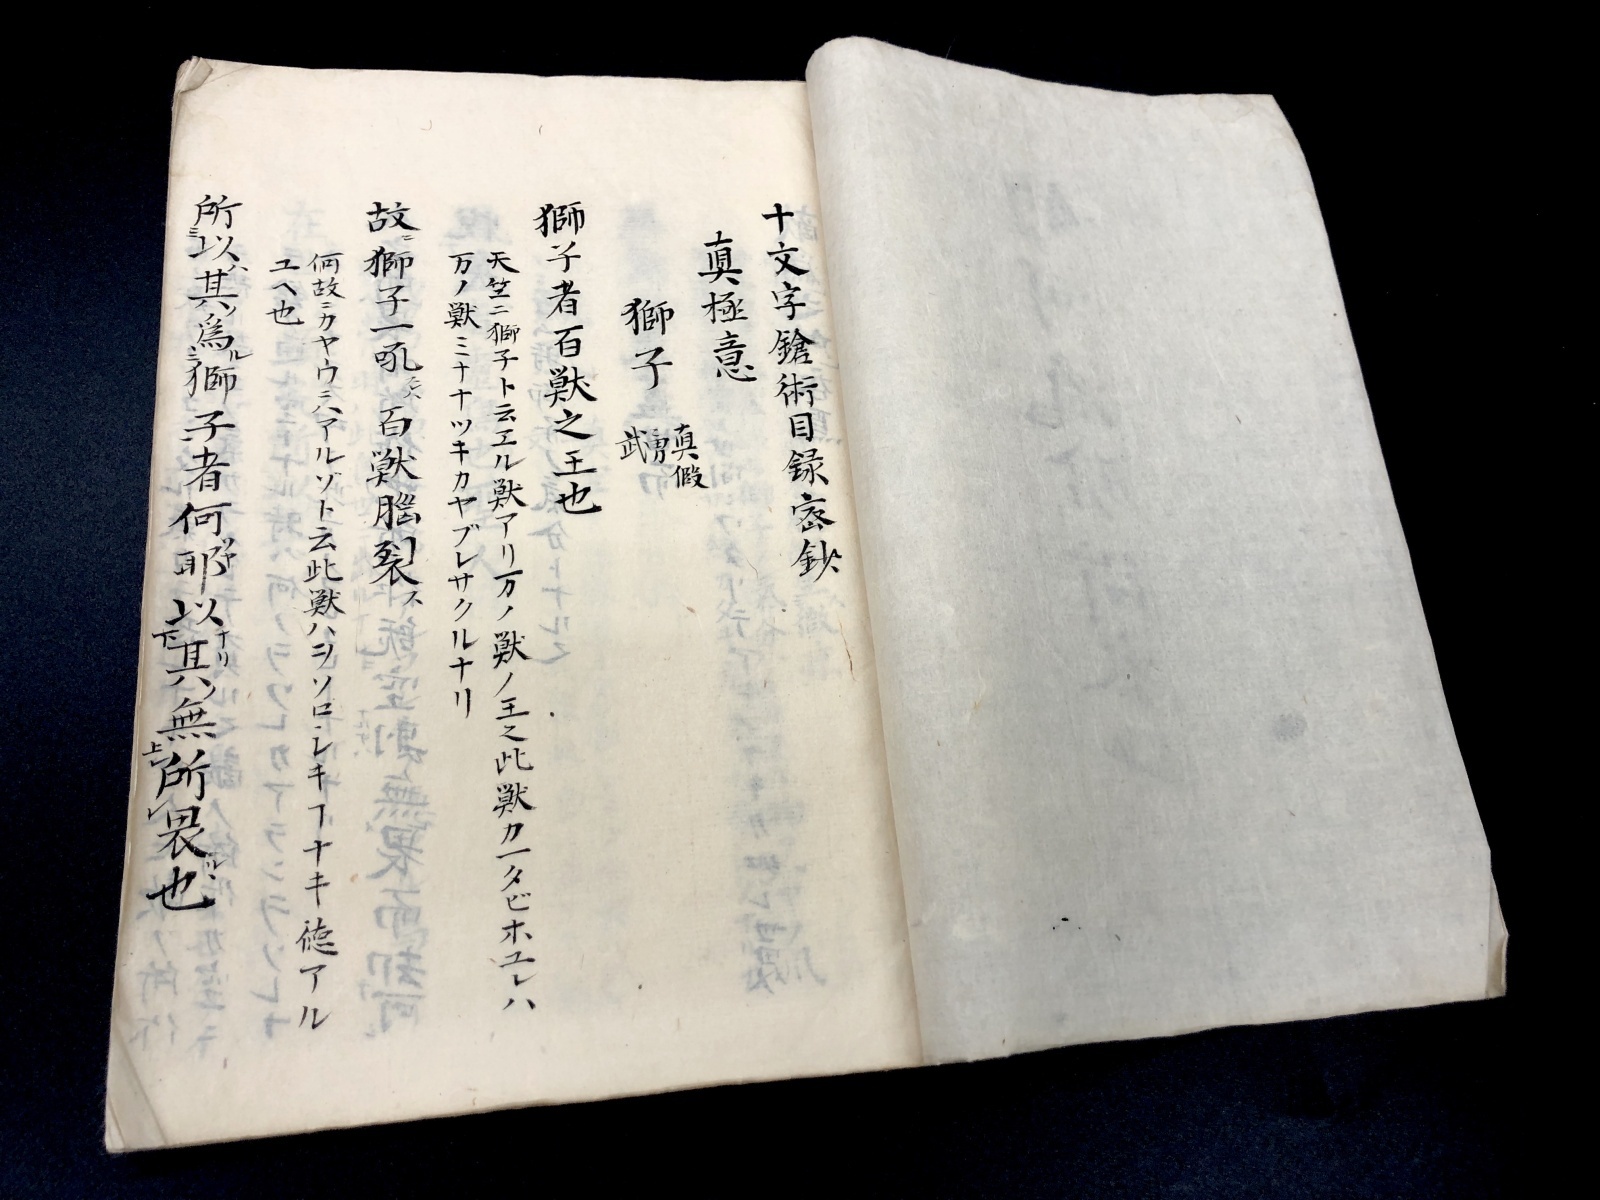 十文字鎗術目録密鈔
真極意
獅子 真假 勇武
獅子者百獣之王也
天竺ニ獅子ト云エル獣アリ万ノ獣ノ王之此獣カ一タビホユレハ
万ノ獣ミナナツキカヤブレサクルナリ
故ニ獅子一吼百獣腦裂ス
何故ニカヤウニハアルゾト云此獣ハヲソロシキヿナキ徳アル
ユヘ也
所以其為獅子者何耶以其無所畏也